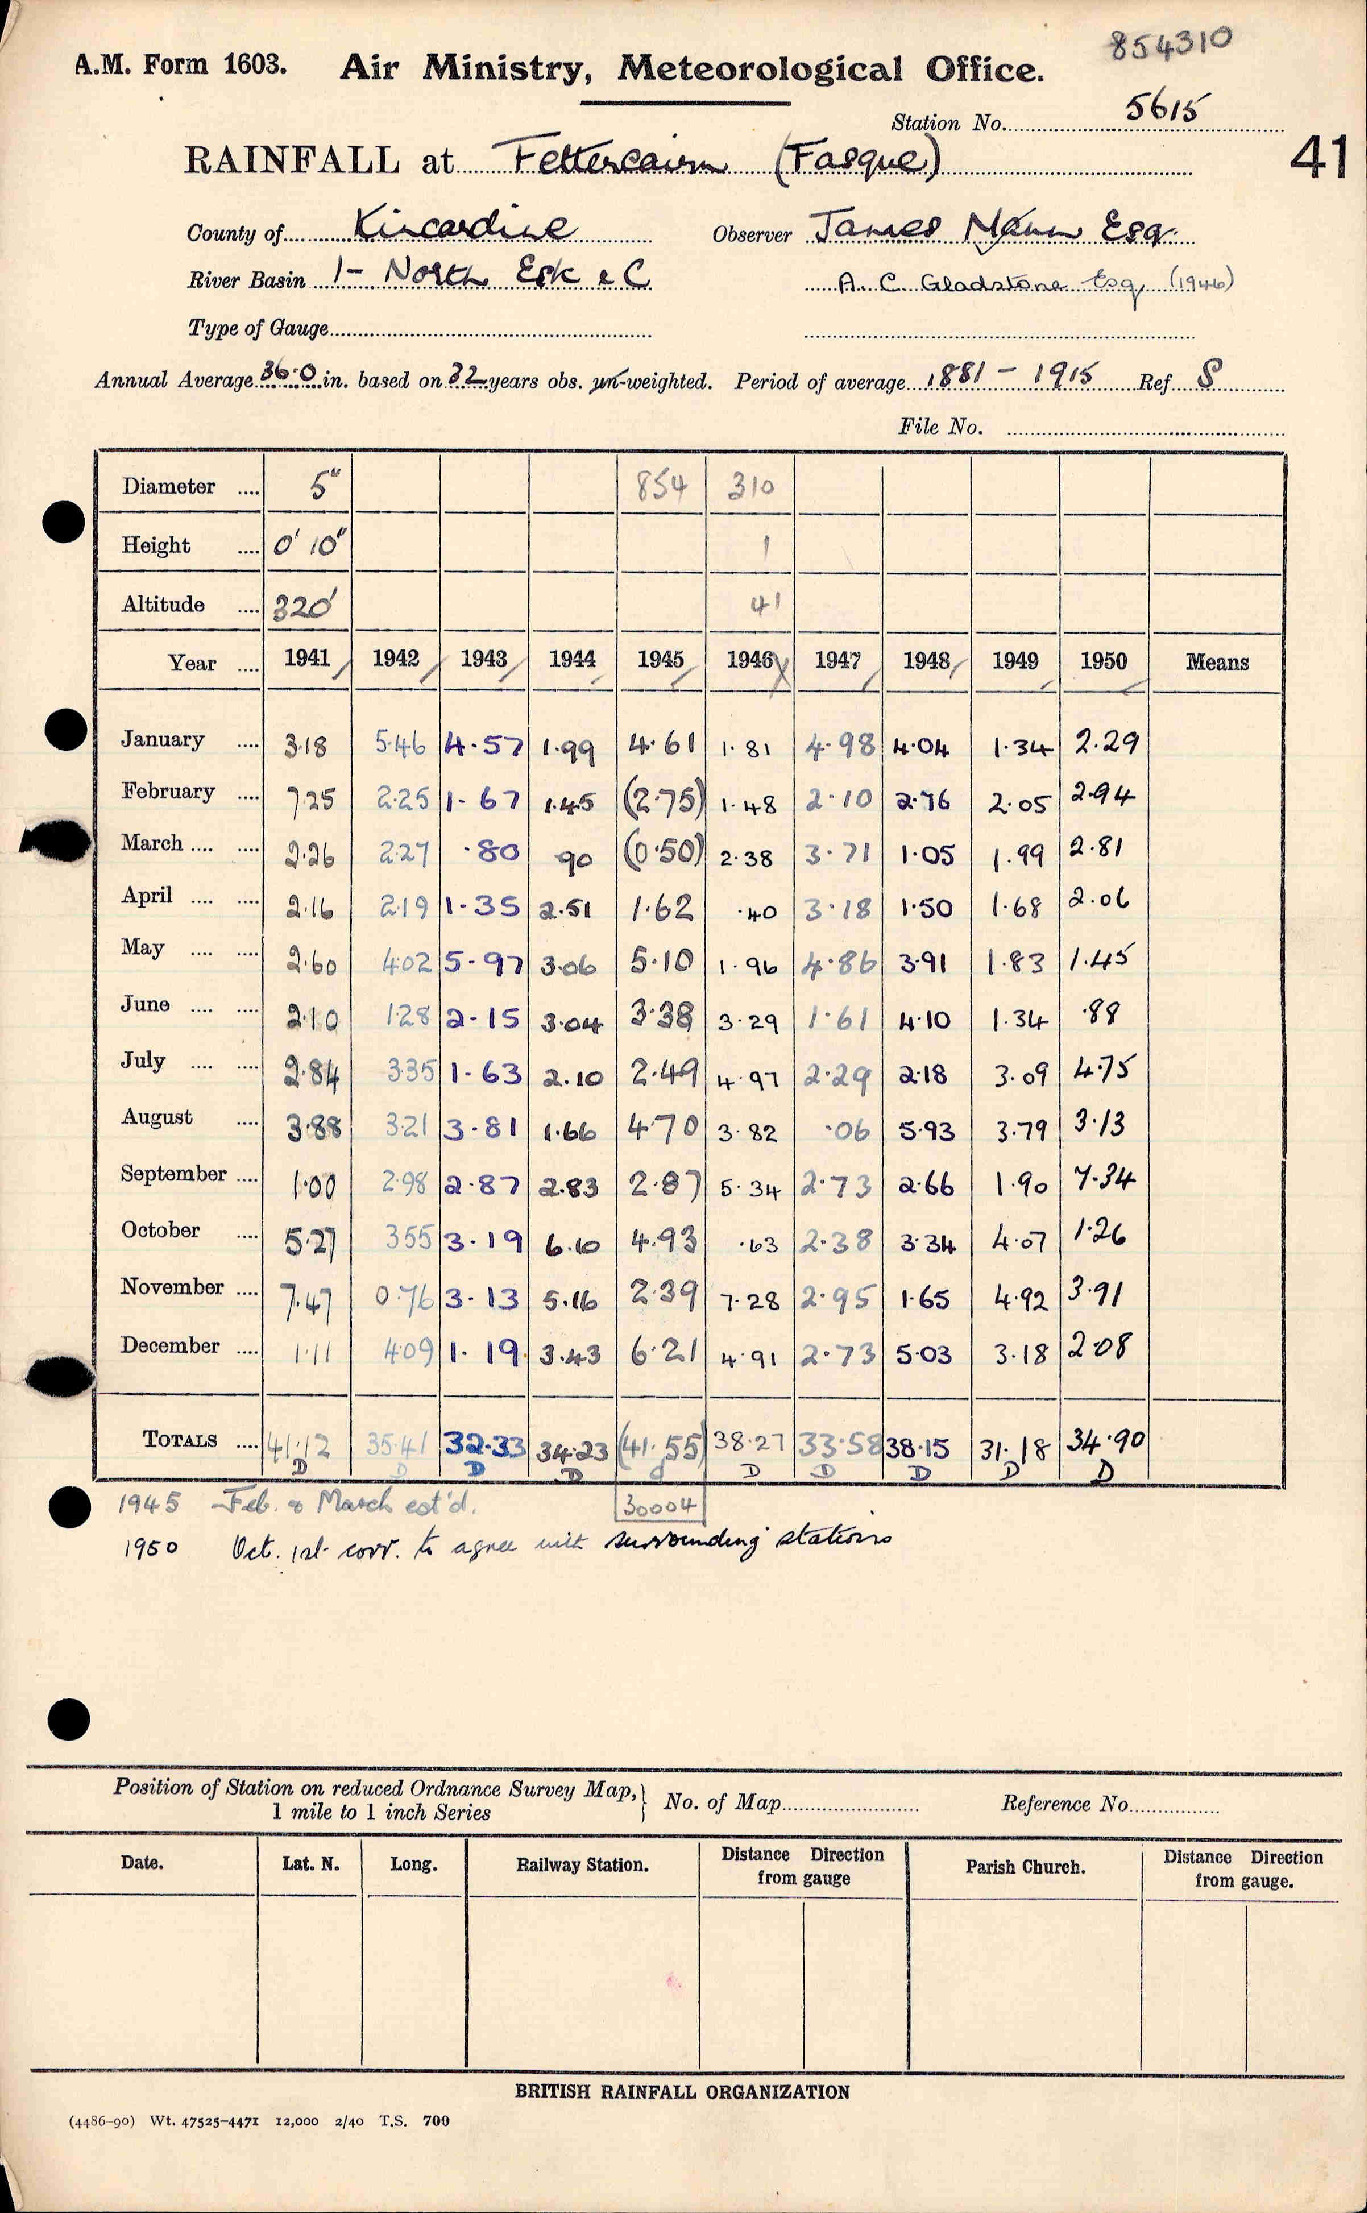 854310
A.M. Form 1603. Air Ministry, Meteorological Office.
Station No. 5615
41
RAINFALL at Fettercairn (Fasque)
County of Kincardine Observer James Mann Esq.
River Basin 1- North Esk &C A. C. Gladstone Esq. (1946)
Type of Gauge
Annual Average 36.0 in. based on 32 years obs. un-weighted. Period of average 1881 - 1915 Ref. S
File No.
Diameter .... 5" 854 310
Height .... 0' 10" 1
Altitude .... 320' 41
Year .... 1941 1942 1943 1944 1945 1946 1947 1948 1949 1950 Means
January .... 3.18 5.46 4.57 1.99 4.61 1.81 4.98 4.04 1.34 2.29
February .... 7.25 2.25 1.67 1.45 (2.75) 1.48 2.10 2.76 2.05 2.94
March .... .... 2.26 2.27 .80 90 (0.50) 2.38 3.71 1.05 1.99 2.81
April .... .... 2.16 2.19 1.35 2.51 1.62 .40 3.18 1.50 1.68 2.06
May .... .... 2.60 4.02 5.97 3.06 5.10 1.96 4.86 3.91 1.83 1.45
June .... .... 2.10 1.28 2.15 3.04 3.38 3.29 1.61 4.10 1.34 .88
July .... .... 2.84 3.35 1.63 2.10 2.49 4.97 2.29 2.18 3.09 4.75
August .... 3.88 3.21 3.81 1.66 4.70 3.82 .06 5.93 3.79 3.13
September .... 1.00 2.98 2.87 2.83 2.87 5.34 2.73 2.66 1.90 7.34
October .... 5.27 3.55 3.19 6.10 4.93 .63 2.38 3.34 4.07 1.26
November .... 7.47 0.76 3.13 5.16 2.39 7.28 2.95 1.65 4.92 3.91
December .... 1.11 4.09 1.19 3.43 6.21 4.91 2.73 5.03 3.18 2.08
TOTALS .... 41.12 35.41 32.33 34.23 (41.55) 38.27 33.58 38.15 31.18 34.90
D D D D d D D D D D
1945 Feb. & March est'd. 30004
1950 Oct. 1st corr. to agree with surrounding stations
Position of Station on reduced Ordnance Survey Map,
1 mile to 1 inch Series
No. of Map Reference No.
Date. Lat. N. Long. Railway Station. Distance Direction from gauge Parish Church. Distance Direction from gauge.
BRITISH RAINFALL ORGANIZATION
(4486-90) Wt. 47525-4471 12,000 2/40 T.S. 700